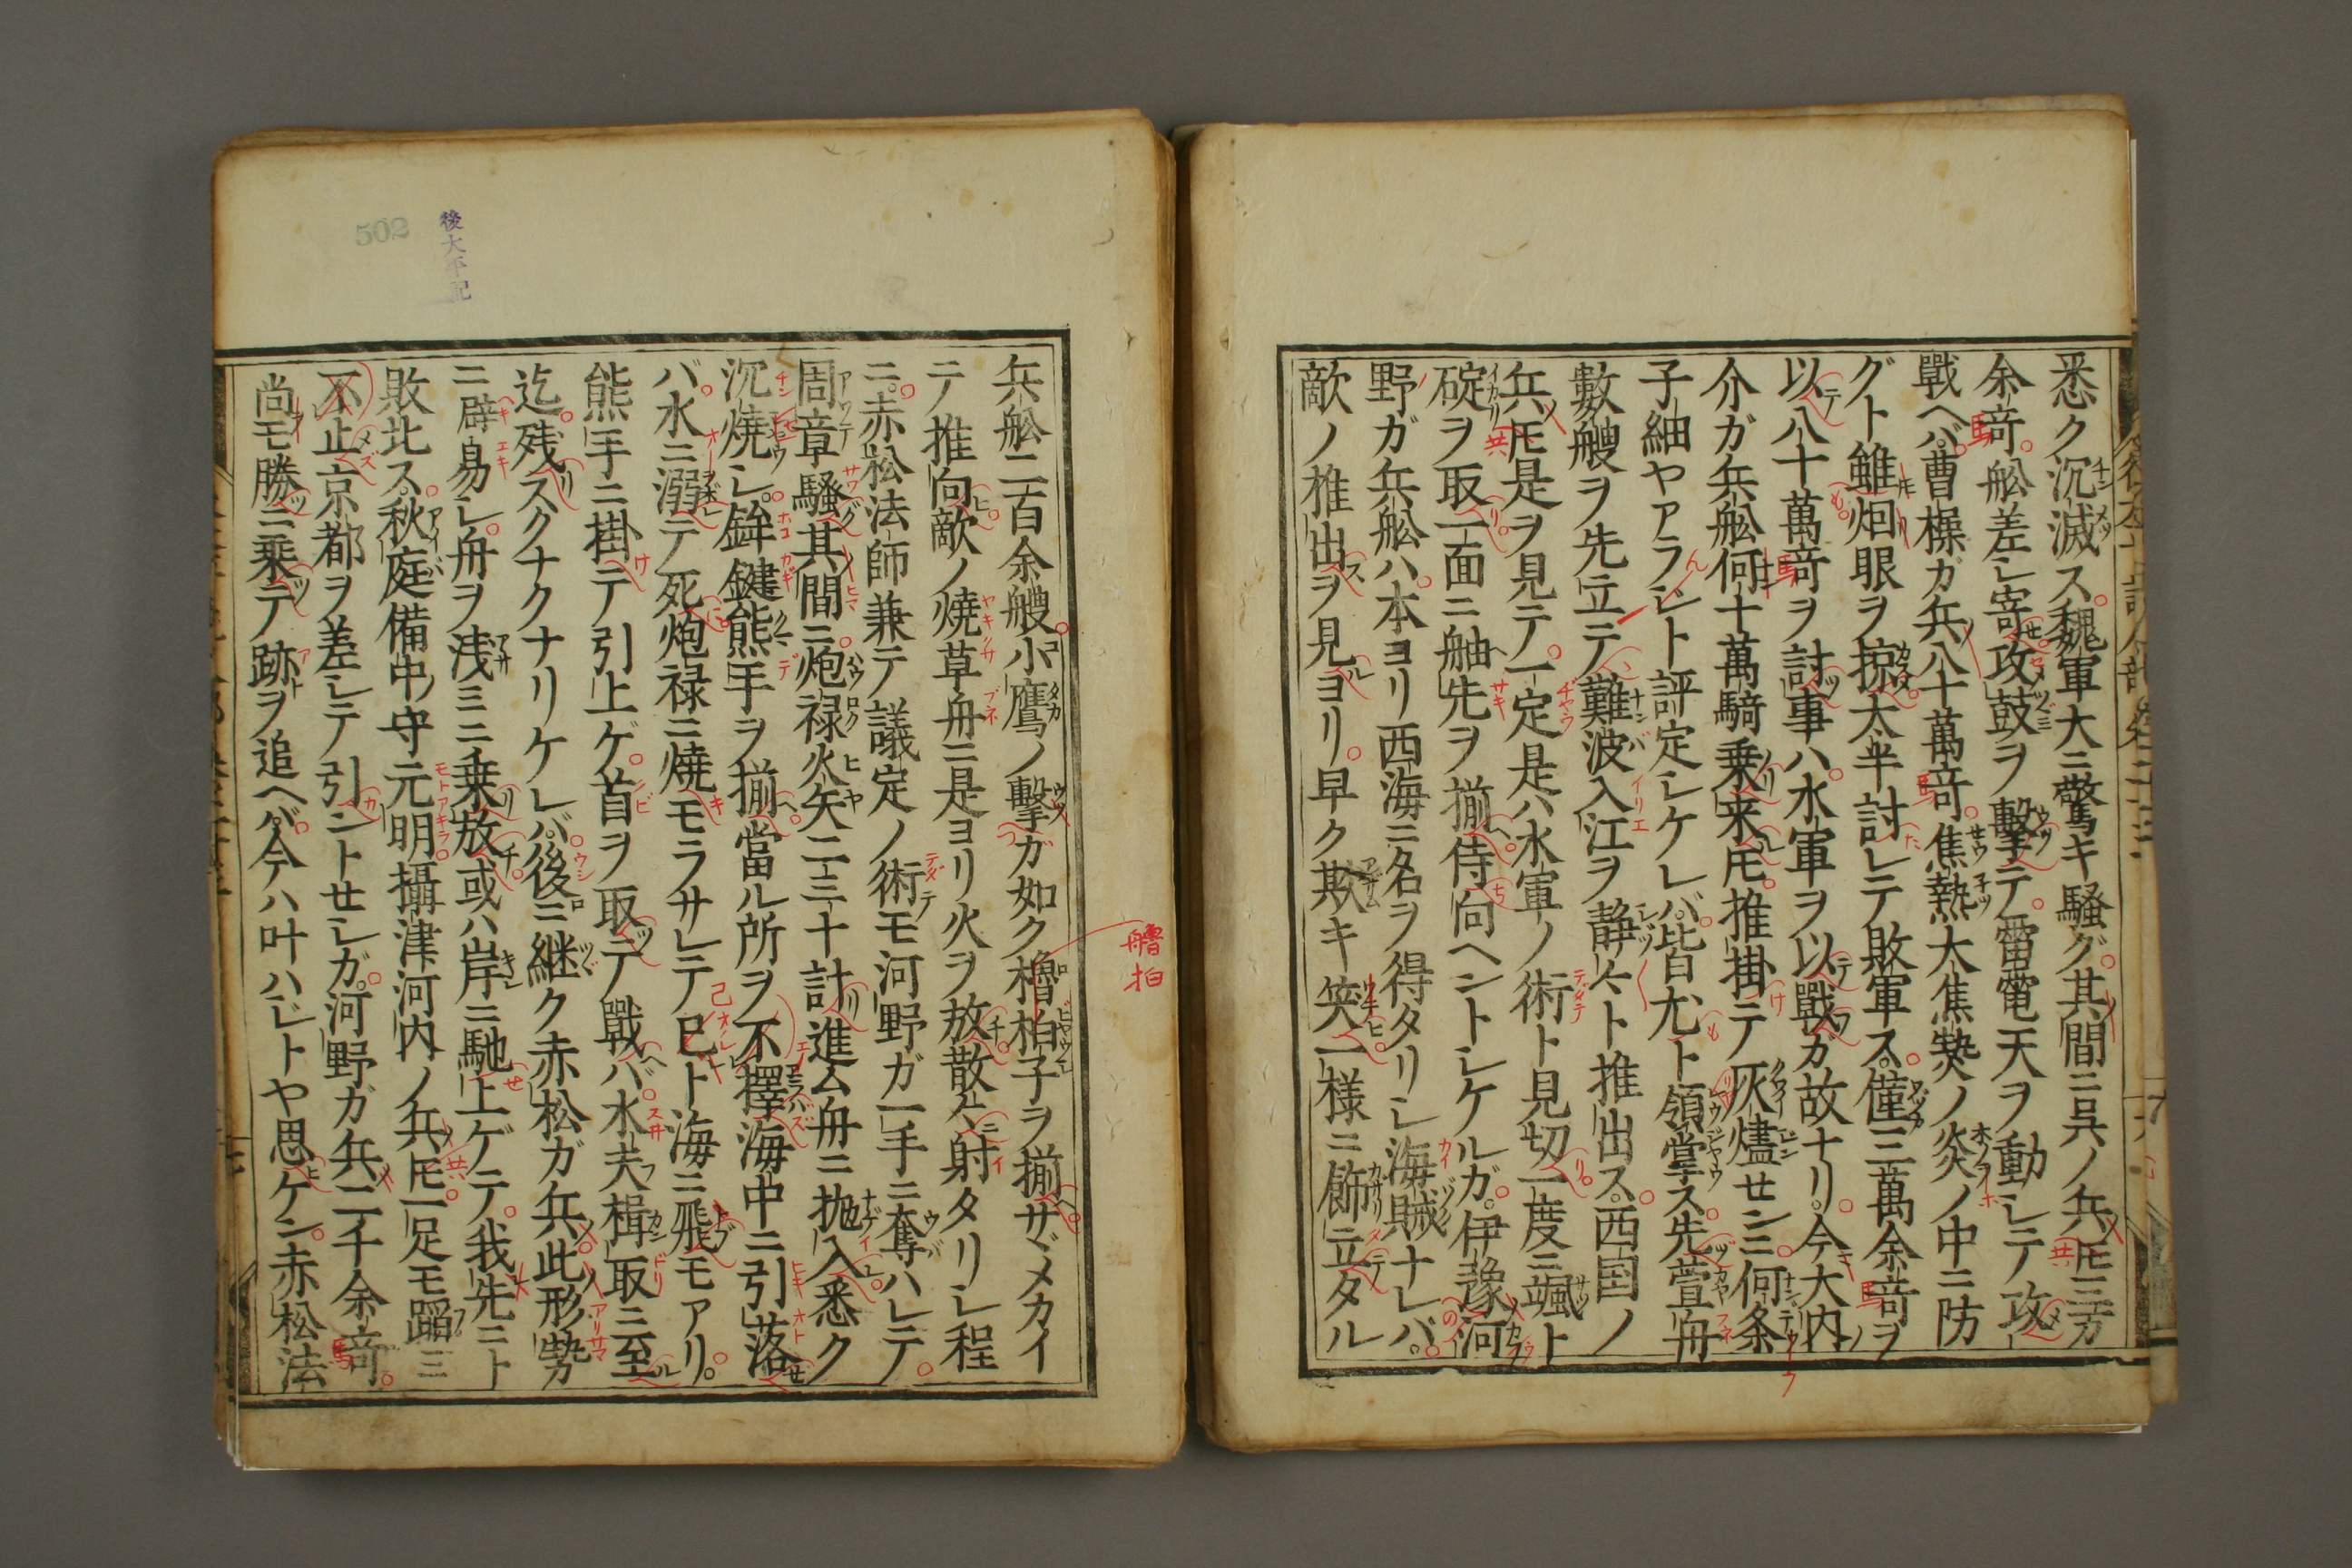 悉ク沉滅ス魏軍大ニ驚キ騒グ其間ニ呉ノ兵𪜈三方
余𩇕舩差シ寄攻鼓ヲ擊テ雷電天ヲ動シテ攻
戰ヘバ曹操ガ兵八十萬竒焦熱大焦𤍠ノ炎ノ中ニ防
グト雖烟眼ヲ掠太半討レテ敗軍ス僅三萬余竒ヲ
以八十萬竒ヲ討事ハ水軍ヲ以戰ガ故ナリ今大内
介ガ兵舩何十萬騎乗来𪜈推掛テ灰燼セシニ何条
子細ヤアラント評定シケレバ皆尤ト領掌ス先萱舟
數艘ヲ先立テ難波入江ヲ静々ト推出ス西国ノ
兵𪜈是ヲ見テ一定是ハ水軍ノ術ト見切一度ニ颯ト
碇ヲ取一面ニ舳先ヲ揃待向ヘントシケルガ伊豫河
野ガ兵舩ハ本ヨリ西海ニ名ヲ得タリシ海賊ナレバ
敵ノ推出ヲ見ヨリ早ク欺キ笑一様ニ飾立タル
兵舩二百余艘小鷹ノ擊ガ如ク櫓拍子ヲ揃ザヾメカイ
テ推向敵ノ燒草舟ニ是ヨリ火ヲ放散々射タリシ程
ニ赤松法師兼テ議定ノ術モ河野ガ一手ニ奪ハレテ
周章騒其間ニ炮禄火矢二三十計進ム舟ニ抛入悉ク
沉燒シ鉾鍵熊手ヲ揃當ル所ヲ不擇海中ニ引落
バ水ニ溺テ死炮禄ニ燒モラサレテ已ト海ニ飛モアリ
熊手ニ掛テ引上ゲ首ヲ取テ戰バ水夫楫取ニ至
迄残スクナクナリケレバ後ニ継ク赤松ガ兵此形㔟
ニ辟易シ舟ヲ浅ミニ乗放或ハ岸ニ馳上ゲテ我先ニト
敗北ス秋庭備中守元明攝津河内ノ兵𪜈一足モ蹈ニ
不止京都ヲ差シテ引ントセシガ河野ガ兵二千余竒
尚モ勝ニ乗テ跡ヲ追ヘバ今ハ叶ハジトヤ思ケン赤松法
艪拍
後太平記
502